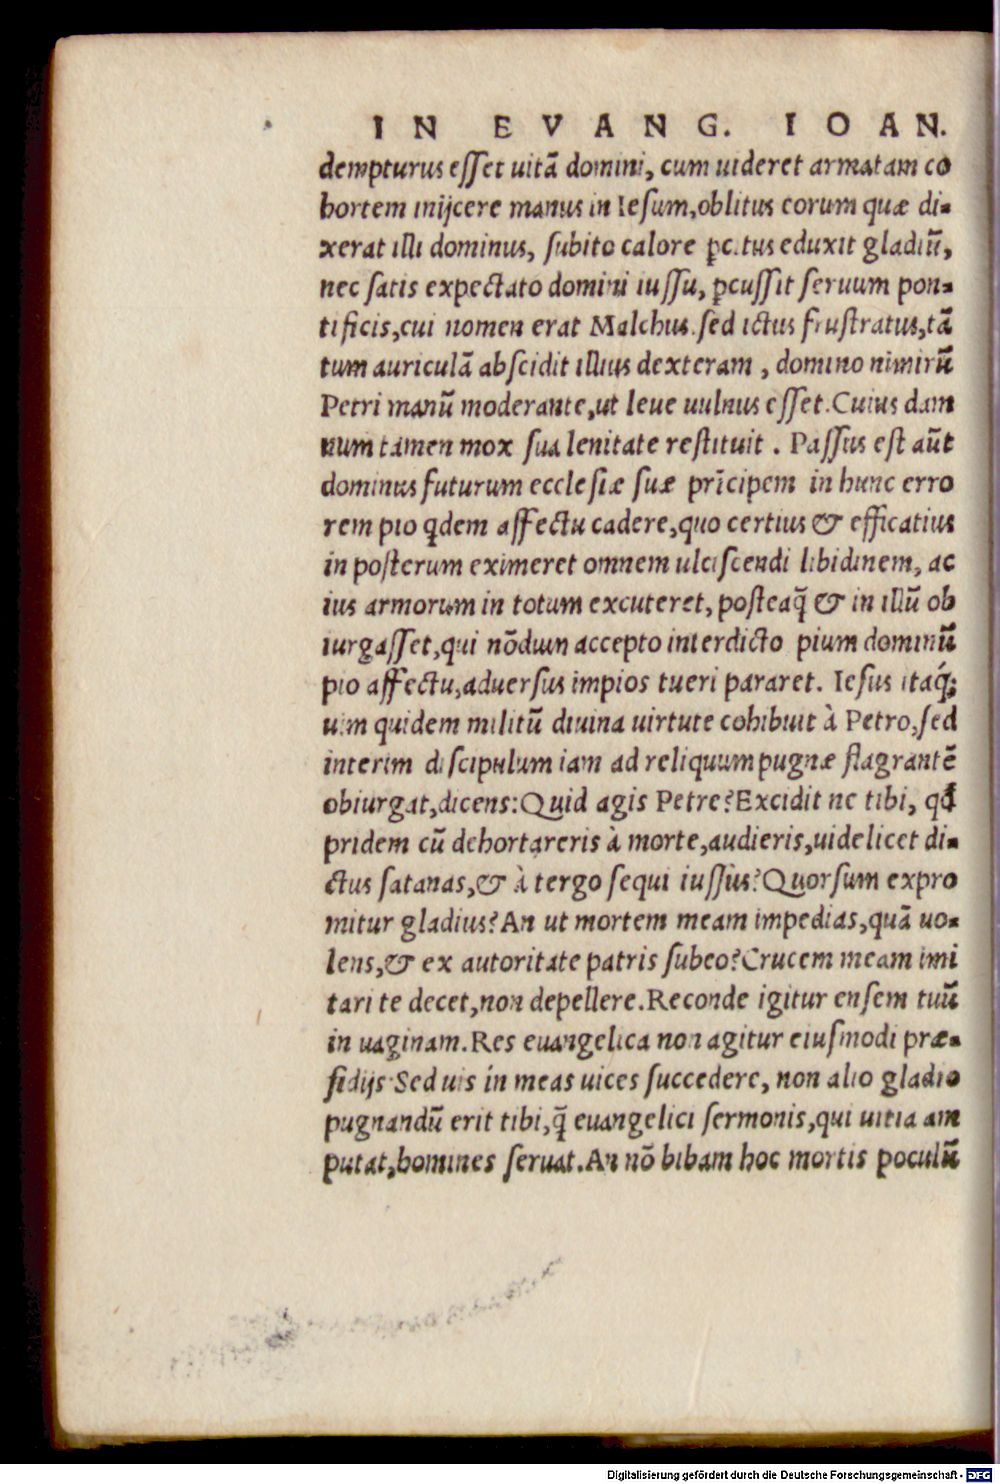 IN EVANG. IOAN.
dempturus esset uitã domini, cum uideret armatam co
hortem inijcere manus in Iesum,oblitus eorum quæ di-
xerat illi dominus, subito calore ꝑcitus eduxit gladiũ,
nec satis expectato domini iussu, ꝑcussit seruum pon-
tificis,cui nomen erat Malchus.sed ictus frustratus,tã
tum auriculã abscidit illius dexteram , domino nimirũ
Petri manũ moderante,ut leue uulnus esset.Cuius dam
num tamen mox sua lenitate restituit . Passus est aũt
dominus futurum ecclesiæ suæ prĩcipem in hunc erro
rem pio qdem affectu cadere,quo certius & efficatius
in posterum eximeret omnem ulciscendi libidinem, ac
ius armorum in totum excuteret, posteaq̃ & in illũ ob
iurgasset,qui nõdum accepto interdicto pium dominũ
pio affectu,aduersus impios tueri pararet. Iesus itaq́;
uim quidem militũ diuina uirtute cohibuit à Petro,sed
interim discipulum iam ad reliquum pugnæ flagrantẽ
obiurgat,dicens:Quid agis Petre?Excidit ne tibi, qđ
pridem cũ dehortareris à morte,audieris,uidelicet di-
ctus satanas,& à tergo sequi iussus?Quorsum expro
mitur gladius?An ut mortem meam impedias,quã uo-
lens,& ex autoritate patris subeo?Crucem meam imi
tari te decet,non depellere.Reconde igitur ensem tuũ
in uaginam.Res euangelica non agitur eiusmodi præ-
sidijs Sed uis in meas uices succedere, non alio gladio
pugnandũ erit tibi,q̃ euangelici sermonis,qui uitia am
putat,homines seruat.An nõ bibam hoc mortis poculũ
Digitalisierung gefördert durch die Deutsche Forschungsgemeinschaft - DFG